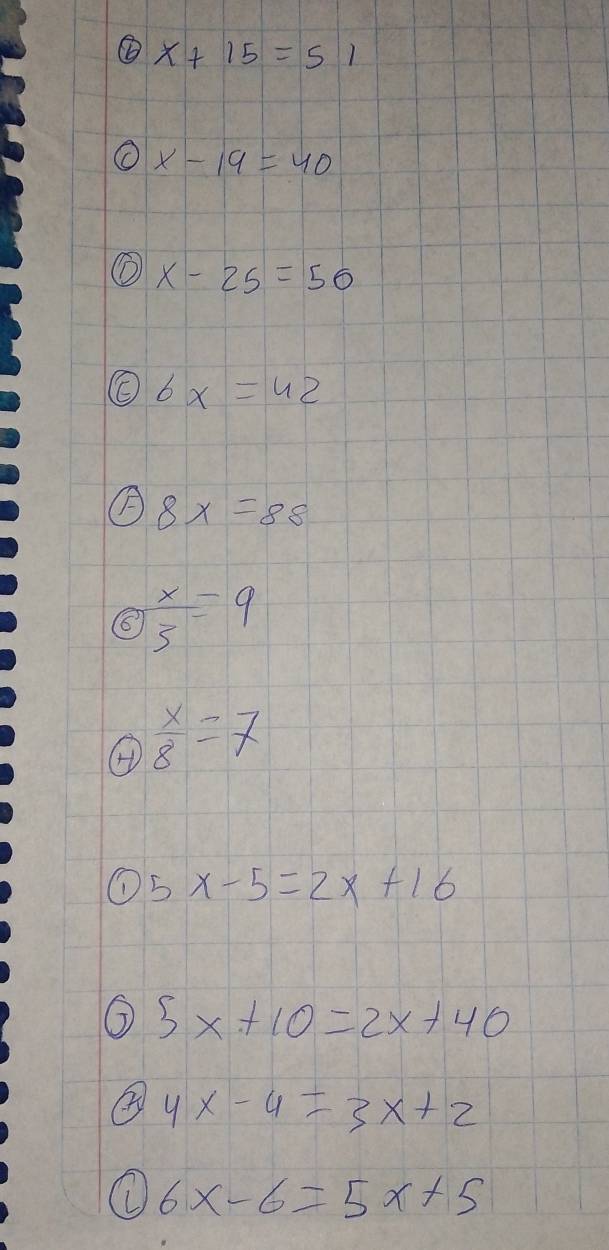 Ⓑ x + 15 = 51
Ⓒ x - 19 = 40
Ⓓ x - 25 = 50
Ⓔ 6x = 42
Ⓕ 8x = 88
Ⓖ x/3 = 9
Ⓗ x/8 = 7
Ⓘ 5x - 5 = 2x + 16
Ⓙ 5x + 10 = 2x + 40
Ⓚ 4x - 4 = 3x + 2
Ⓛ 6x - 6 = 5x + 5